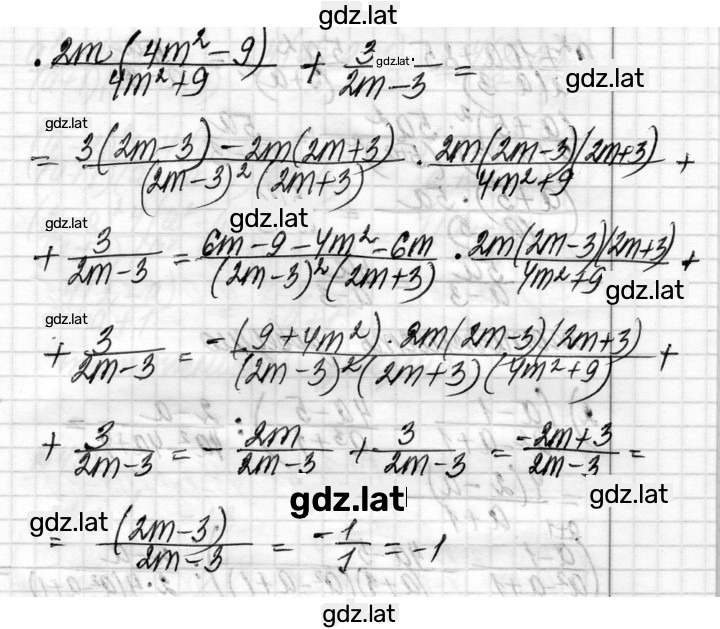 gdz.lat
· 2m(4m² − 9) / 4m² + 9 + 3 / 2m − 3 =
gdz.lat
gdz.lat
gdz.lat
= 3(2m−3) − 2m(2m+3) / (2m−3)² (2m+3) · 2m(2m−3)(2m+3) / 4m² + 9 +
gdz.lat
gdz.lat
+ 3 / 2m−3 = 6m − 9 − 4m² − 6m / (2m−3)² (2m+3) · 2m(2m−3)(2m+3) / 4m² + 9 +
gdz.lat
gdz.lat
+ 3 / 2m−3 = −(9 + 4m²) · 2m(2m−3)(2m+3) / (2m−3)² (2m+3)(4m² + 9) +
+ 3 / 2m−3 = − 2m / 2m−3 + 3 / 2m−3 = −2m+3 / 2m−3 =
gdz.lat
gdz.lat
gdz.lat
= (2m−3) / 2m−3 = −1 / 1 = −1
gdz.lat